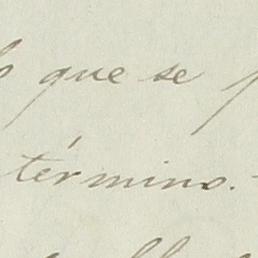 que se
término.-